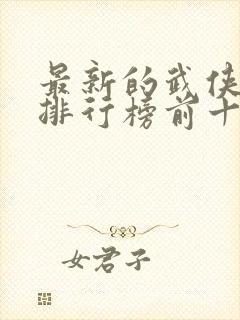 最新的武侠
排行榜前十
女君子